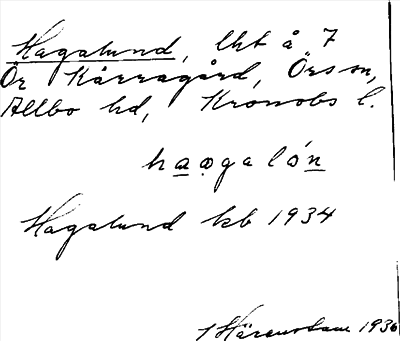 Hagalund, lht å 7
Ör Kårragård, Örs sn,
Allbo hd, Kronobs l.
haogalón
Hagalund kb 1934
Härenstam 1936